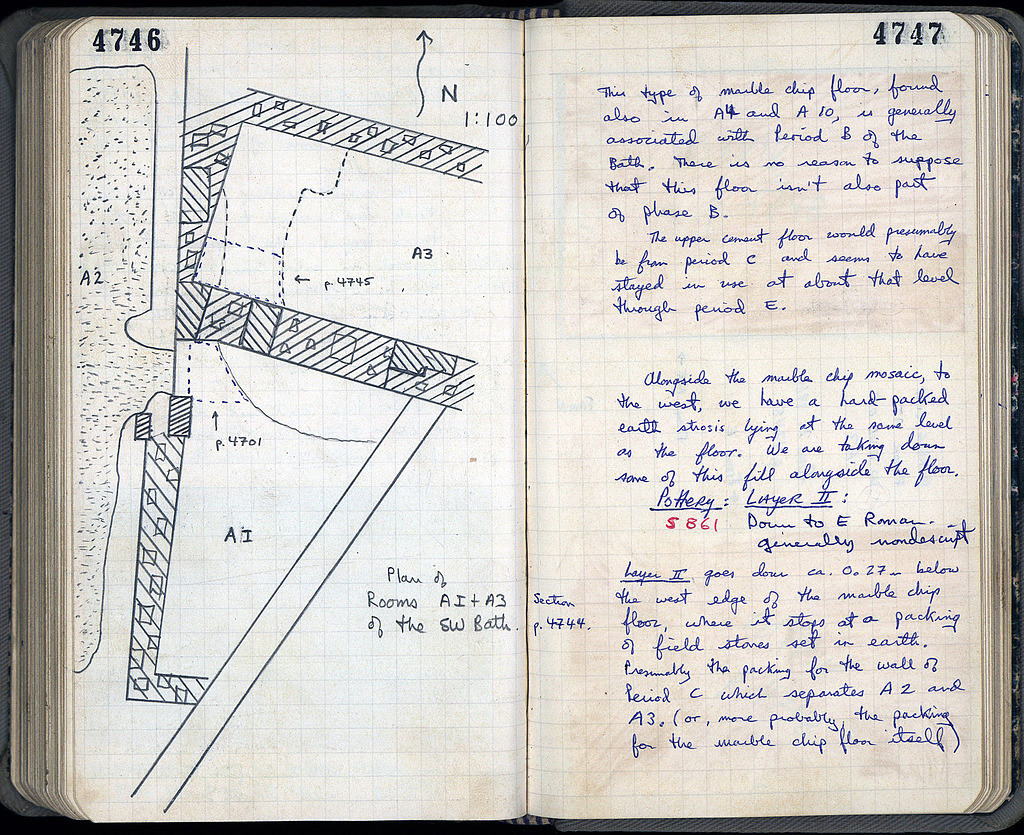 4746
N
1:100
A2
A3
← p. 4745
p. 4701
A I
Plan of
Rooms A I + A3
of the SW Bath.
4747
This type of marble chip floor, found
also in A4 and A 10, is generally
associated with Period B of the
Bath. There is no reason to suppose
that this floor isn't also part
of phase B.
The upper cement floor would presumably
be from period C and seems to have
stayed in use at about that level
through period E.
Alongside the marble chip mosaic, to
the west, we have a hard-packed
earth strosis lying at the same level
as the floor. We are taking down
some of this fill alongside the floor.
Pottery: Layer II:
5861 Down to E Roman. –
generally nondescript
Section
p. 4744.
Layer II goes down ca. 0.27 m below
the west edge of the marble chip
floor, where it stops at a packing
of field stones set in earth.
Presumably the packing for the wall of
Period C which separates A 2 and
A3. (or, more probably, the packing
for the marble chip floor itself)